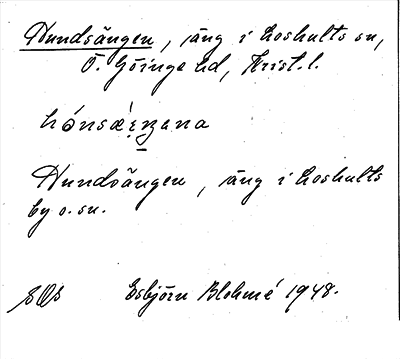 Hundsängen, äng i Loshults sn,
Ö. Göinge hd, Krist. l.
Hundsängen, äng i Loshults
by o. sn.
Esbjörn Blohmé 1948.